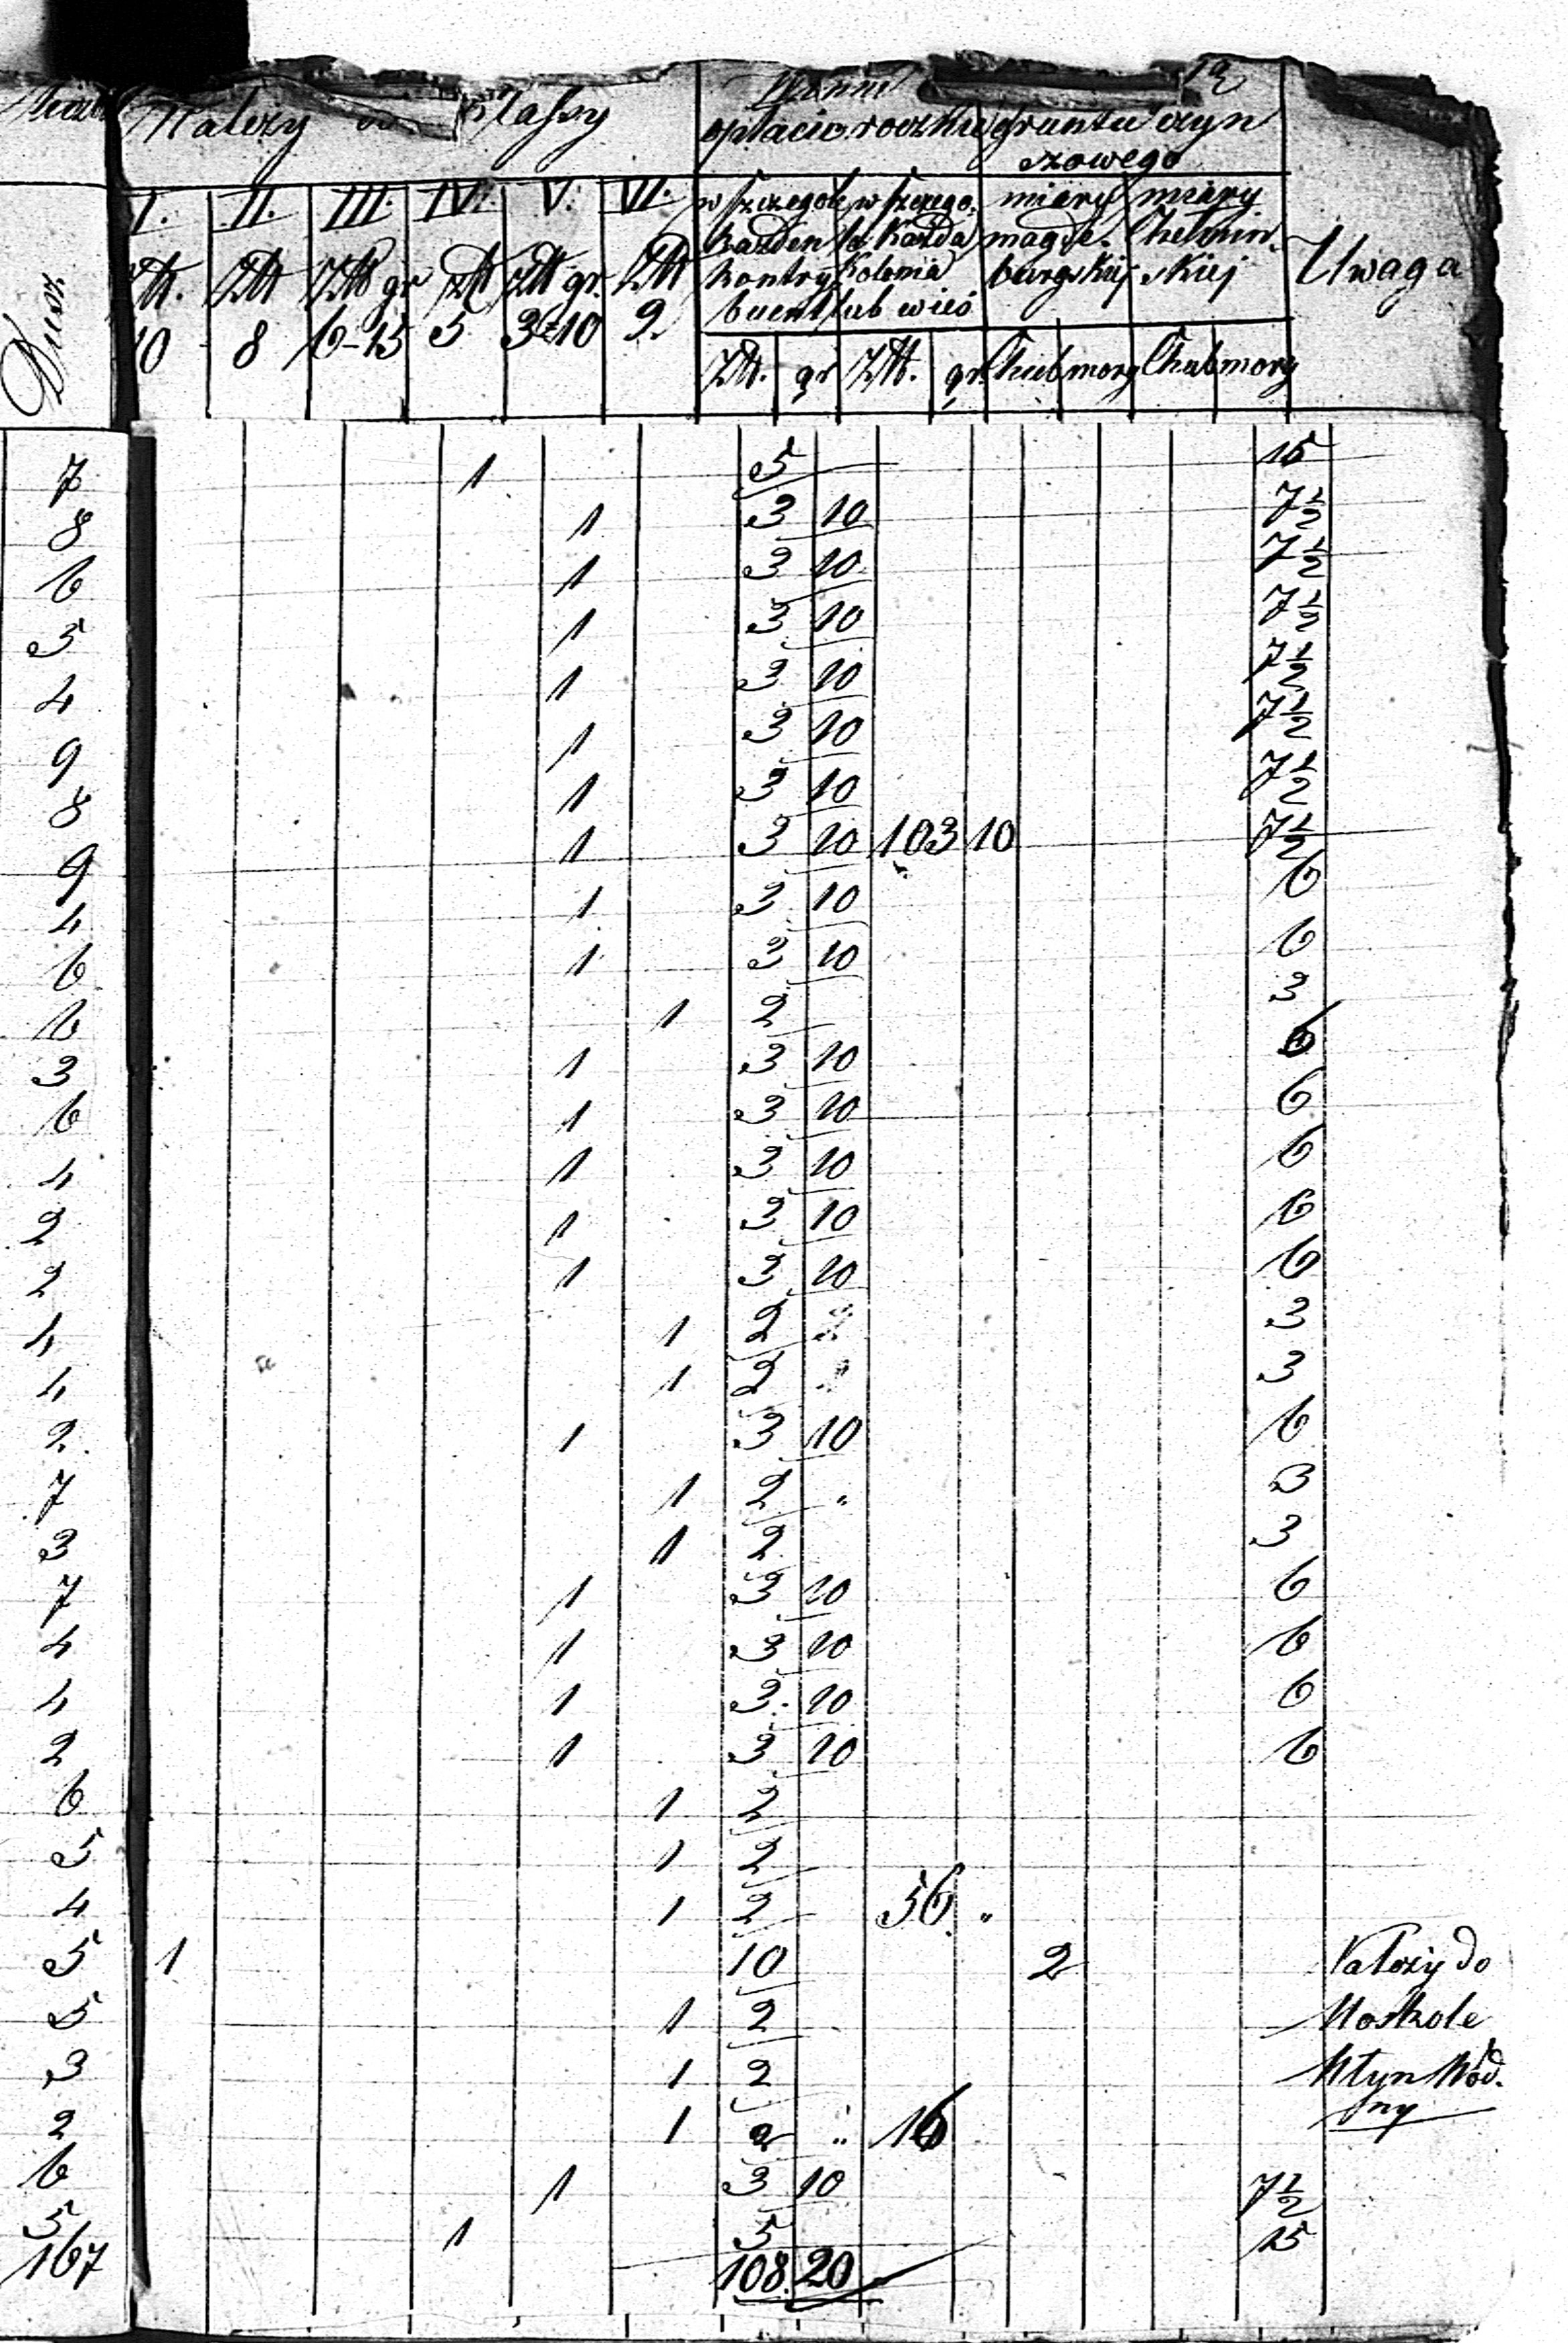 Należy do Klassy
opłacic rocznie gruntu czyn
szowego
I. II. III. IV. V. VI.
w szczegole w szczego. miary miary
każden le każda magde- Chełmin-
kontry Kolonia burgskiej skiej Uwaga
buent lub wieś
Dusz
Złt. Złt Złt gr Złt Złt gr. Złt
10 8 6-15 5 3-10 2.
Złt. gr Złt. gr. Chub morg Chub morg
7 1 5 15
8 1 3 10 7 1/2
6 1 3 10 7 1/2
5 1 3 10 7 1/2
4 1 3 10 7 1/2
9 1 3 10 7 1/2
8 1 3 10 7 1/2
9 1 3 10 103 10 7 1/2
4 1 3 10 6
6 1 3 10 6
6 1 2 3
3 1 3 10 6
6 1 3 10 6
4 1 3 10 6
2 1 3 10 6
2 1 3 10 6
4 1 2 " 3
4 1 2 " 3
2. 1 3 10 6
7 1 2 " 3
3 1 2 3
7 1 3 10 6
4 1 3 10 6
4 1 3. 10 6
2 1 3 10 6
6 1 2
5 1 2
4 1 2 56 "
5 1 10 2 Należy do
5 1 2 Moskole
3 1 2 Młyn Wod.
2 1 2 " 16 ny
6 1 3 10 7 1/2
5 1 5 15
167 108. 20